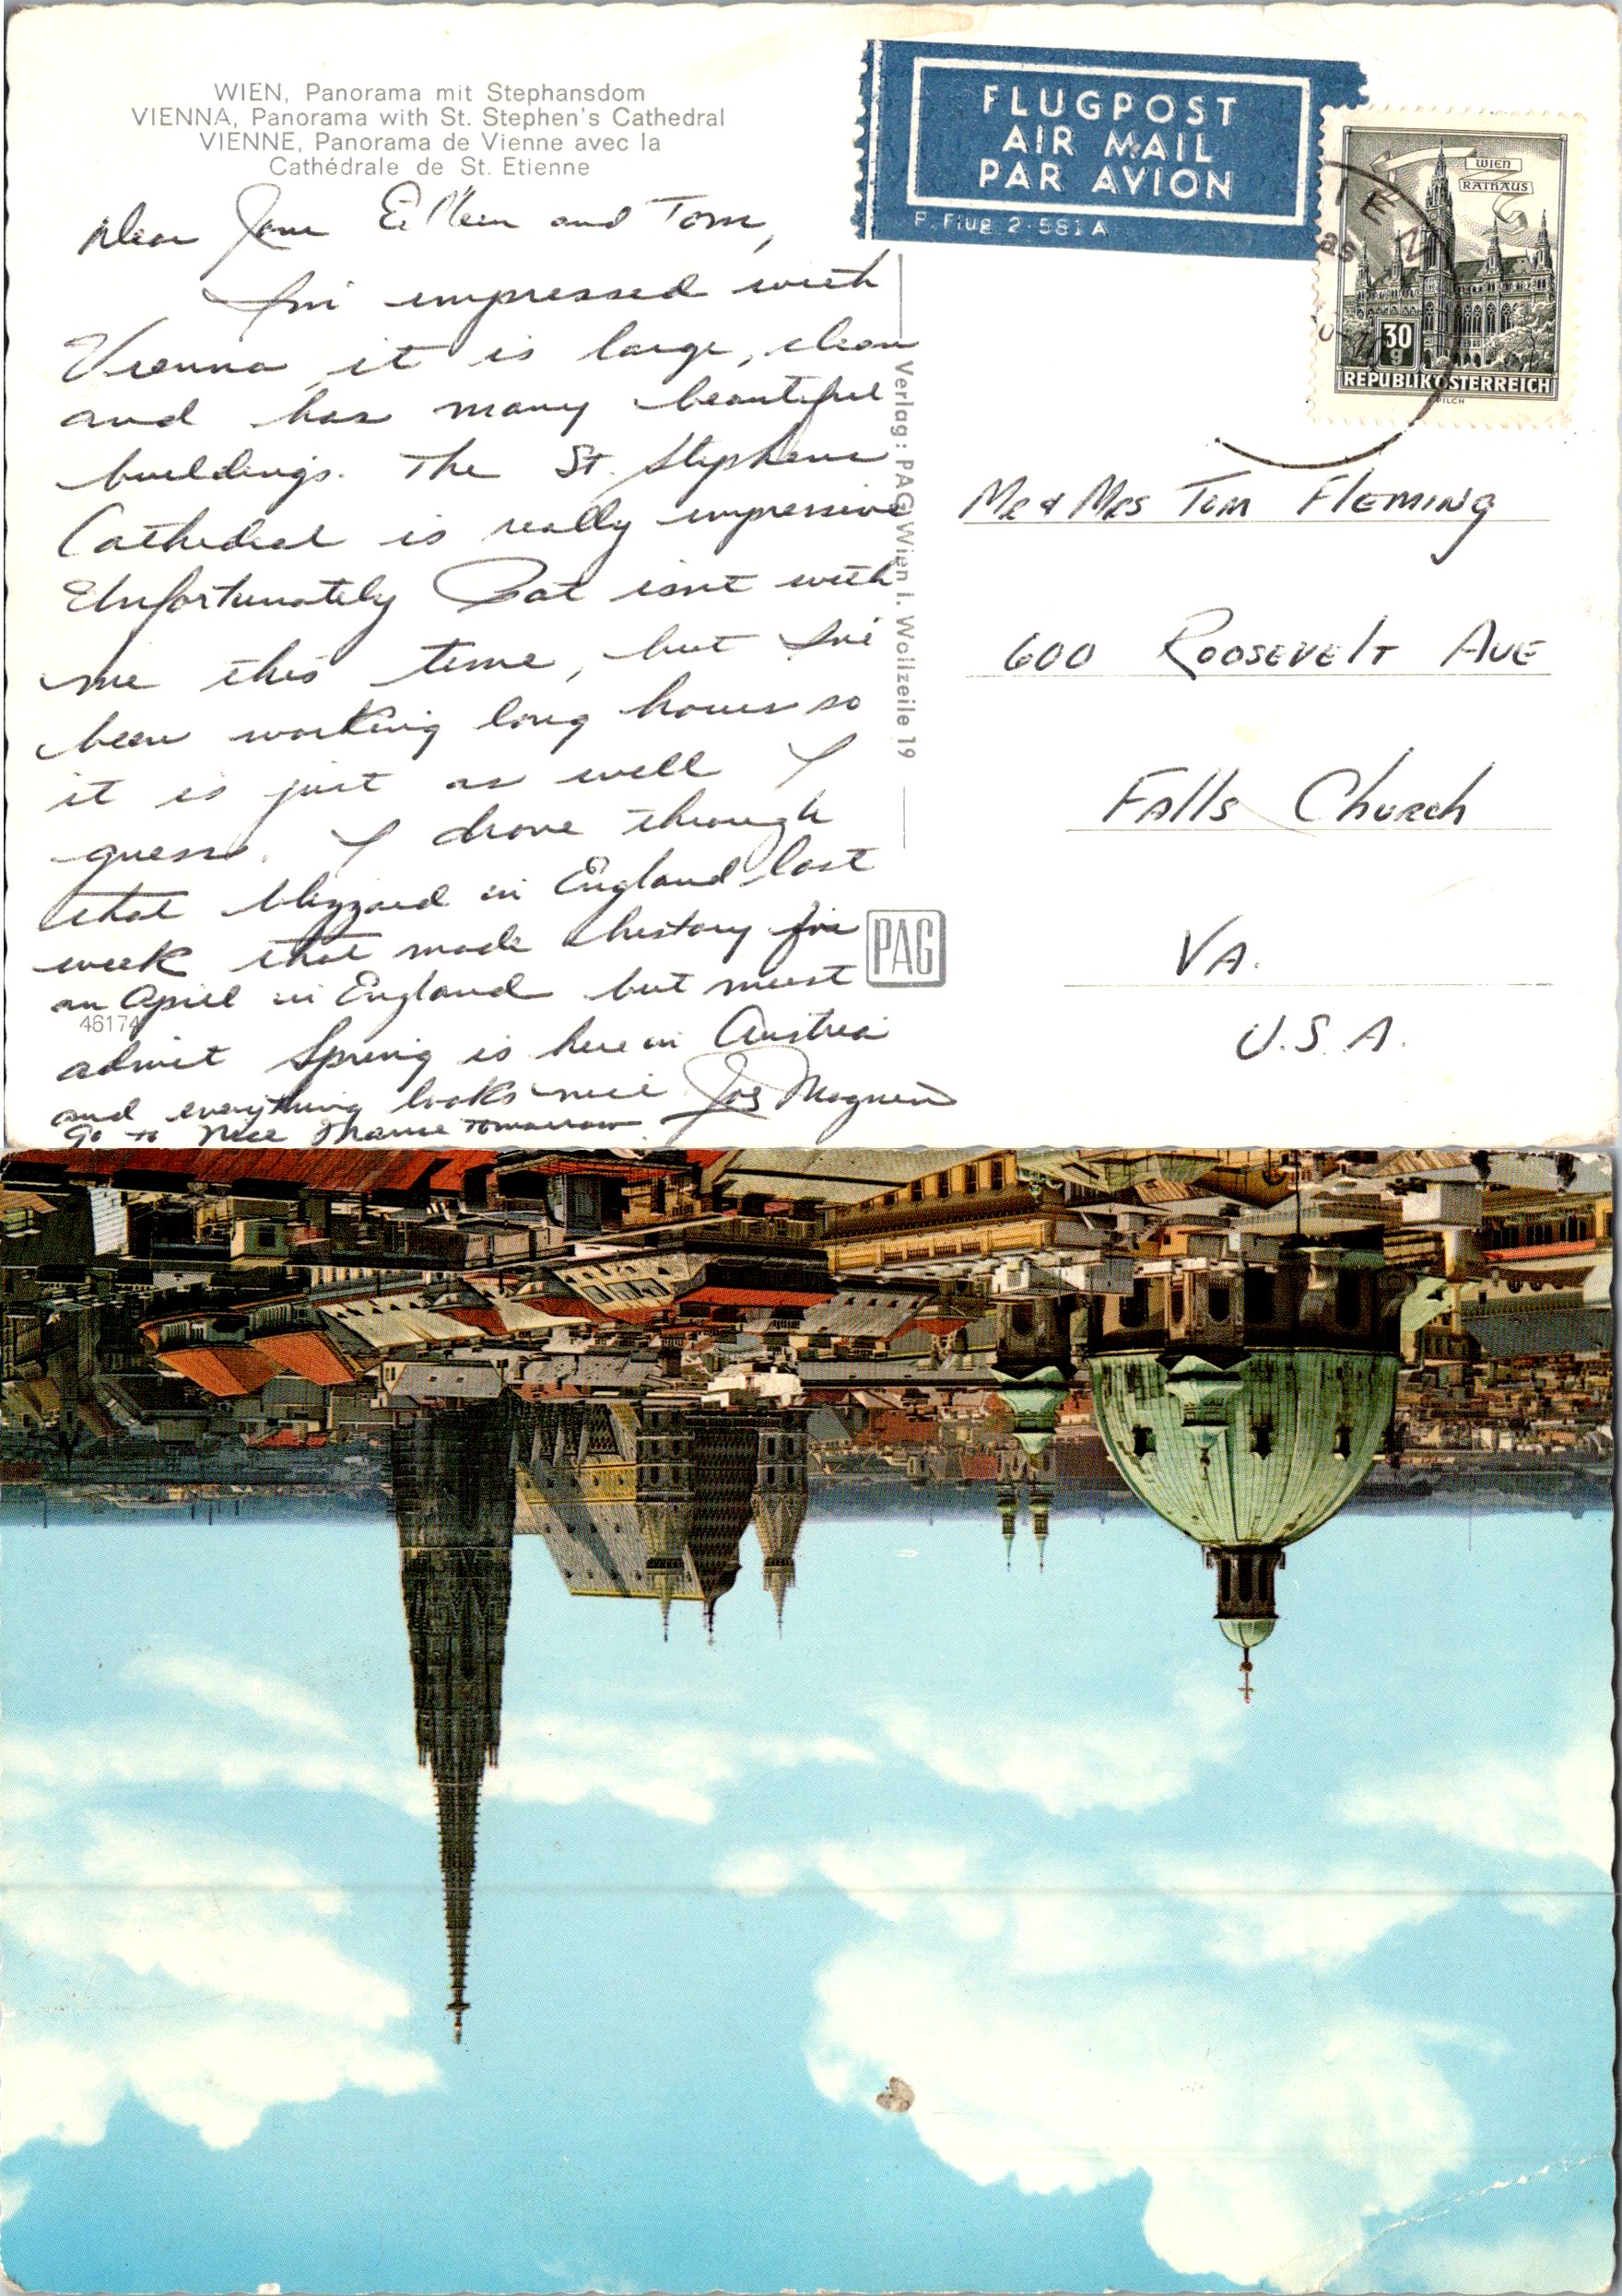 WIEN, Panorama mit Stephansdom
VIENNA, Panorama with St. Stephen's Cathedral
VIENNE, Panorama de Vienne avec la
Cathédrale de St. Etienne
FLUGPOST
AIR MAIL
PAR AVION
P. Flug 2-581A
WIEN
RATHAUS
WIEN
30
g
REPUBLIK ÖSTERREICH
Dear Jane Eilleen and Tom,
I'm impressed with
Vienna it is large, clean
and has many beautiful
buildings. The St. Stephens
Cathedral is really impressive
Unfortunately Pat isnt with
me this time, but I've
been working long hours so
it is just as well I
guess. I drove through
that blizzard in England last
week that made history for
an April in England but must
admit Spring is here in Austria
and everything looks nice Joe
Go to Nice France Tomorrow
Verlag: PAG Wien I. Wollzeile 19
PAG
46174
Mr & Mrs Tom Fleming
600 Roosevelt Ave
Falls Church
VA.
U.S.A.